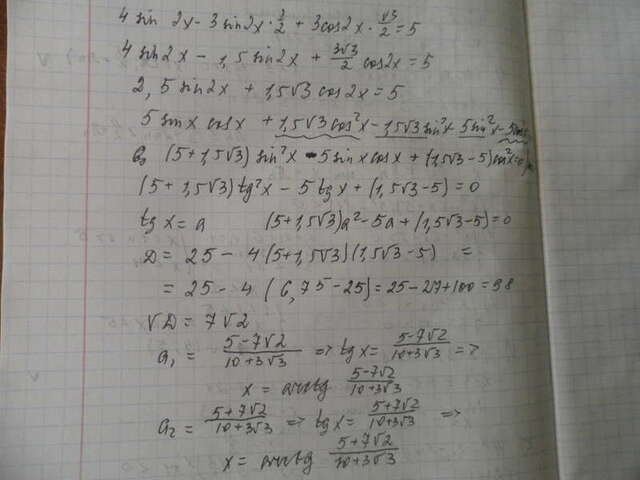 4 sin 2x - 3 sin2x · 1/2 + 3cos2x · √3/2 = 5
4 sin2x - 1,5 sin2x + 3√3/2 cos2x = 5
2,5 sin2x + 1,5√3 cos2x = 5
5 sinx cosx + 1,5√3 cos²x - 1,5√3 sin²x - 5 sin²x - 5cos
(5+1,5√3) sin²x - 5 sinx cosx + (1,5√3-5) cos²x = 0
(5+1,5√3) tg²x - 5 tgx + (1,5√3-5) = 0
tg x = a (5+1,5√3)a² - 5a + (1,5√3-5) = 0
D = 25 - 4(5+1,5√3)(1,5√3-5) =
= 25 - 4 (6,75-25) = 25-27+100 = 98
√D = 7√2
a₁ = 5-7√2/10+3√3 => tg x = 5-7√2/10+3√3 =>
x = arctg 5-7√2/10+3√3
a₂ = 5+7√2/10+3√3 => tg x = 5+7√2/10+3√3 =>
x = arctg 5+7√2/10+3√3